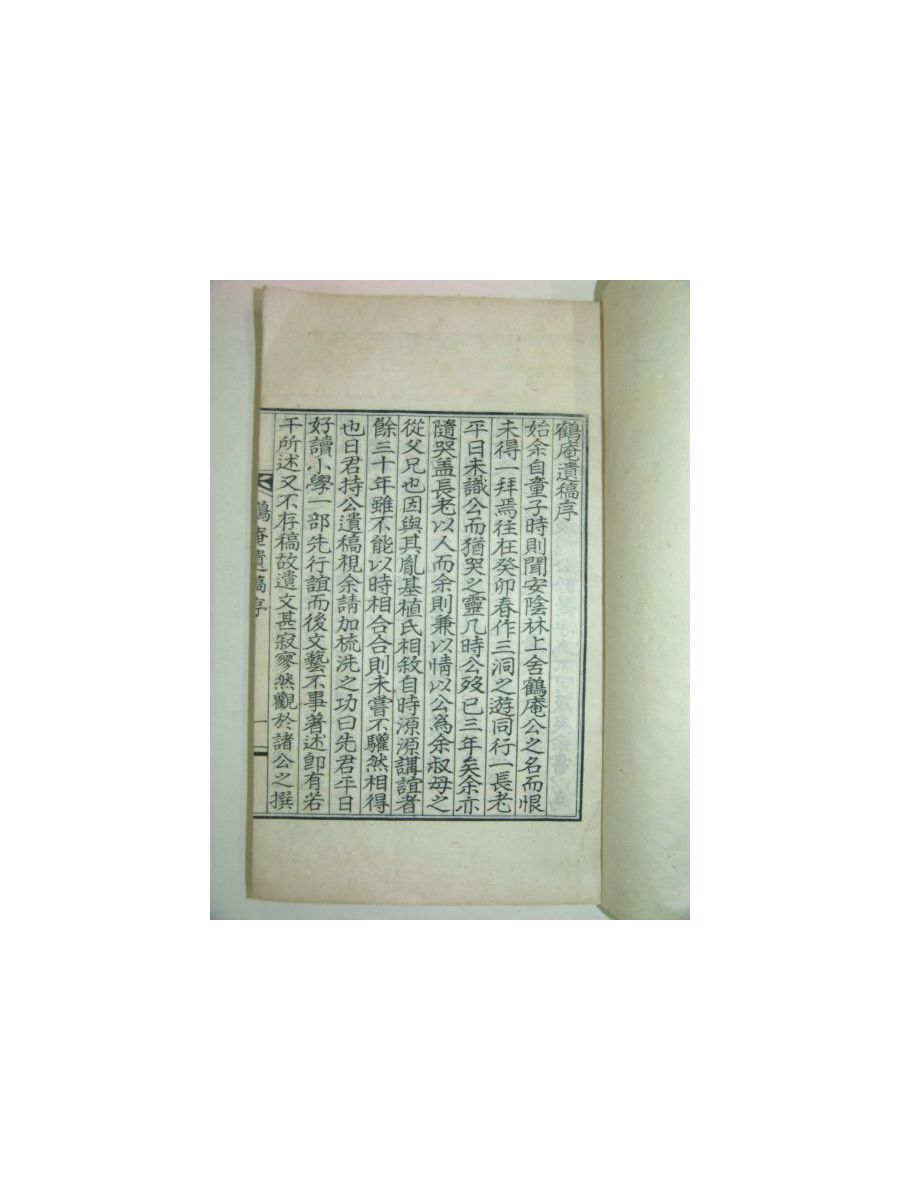 鶴庵遺稿序
始余自童子時則聞安陰林上舍鶴庵公之名而恨
未得一拜焉往在癸卯春作三洞之遊同行一長老
平日未識公而猶哭之靈几時公歿已三年矣余亦
隨哭盖長老以人而余則兼以情以公爲余叔母之
從父兄也因與其胤基植氏相敘自時源源講誼者
餘三十年雖不能以時相合合則未嘗不驩然相得
也日君持公遺稿視余請加梳洗之功曰先君平日
好讀小學一部先行誼而後文藝不事著述卽有若
干所述又不存稿故遺文甚寂寥然觀於諸公之撰
鶴庵遺稿序
一